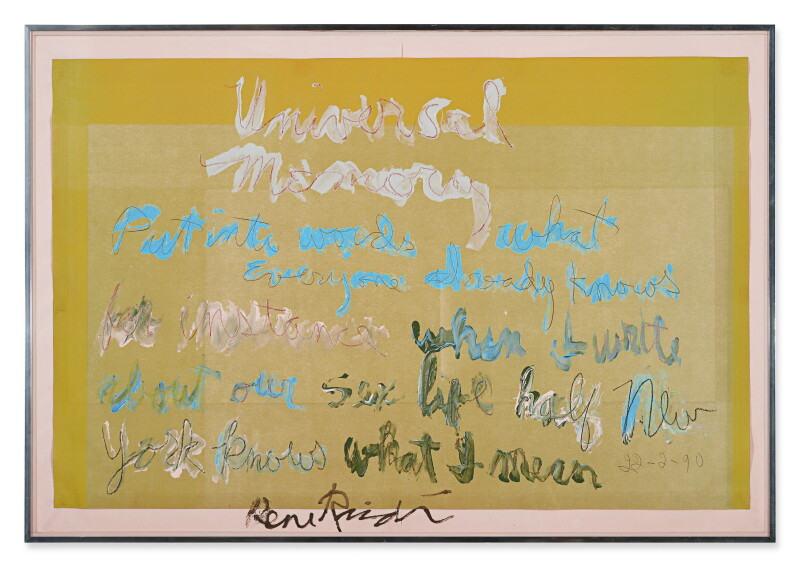 Universal
Memory
Put into words what
everyone already knows
for instance when I write
about our sex life half New
York knows what I mean
22-2-90
Rene Ricard